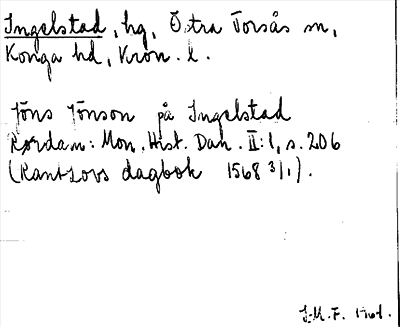 Ingelstad, hg, Östra Torsås sn,
Konga hd, Kron. l.
Jöns Jönson på Ingelstad
Rørdam: Mon. Hist. Dan. II:1, s. 206
(Rantzovs dagbok 1568 3/1).
J.M.F.